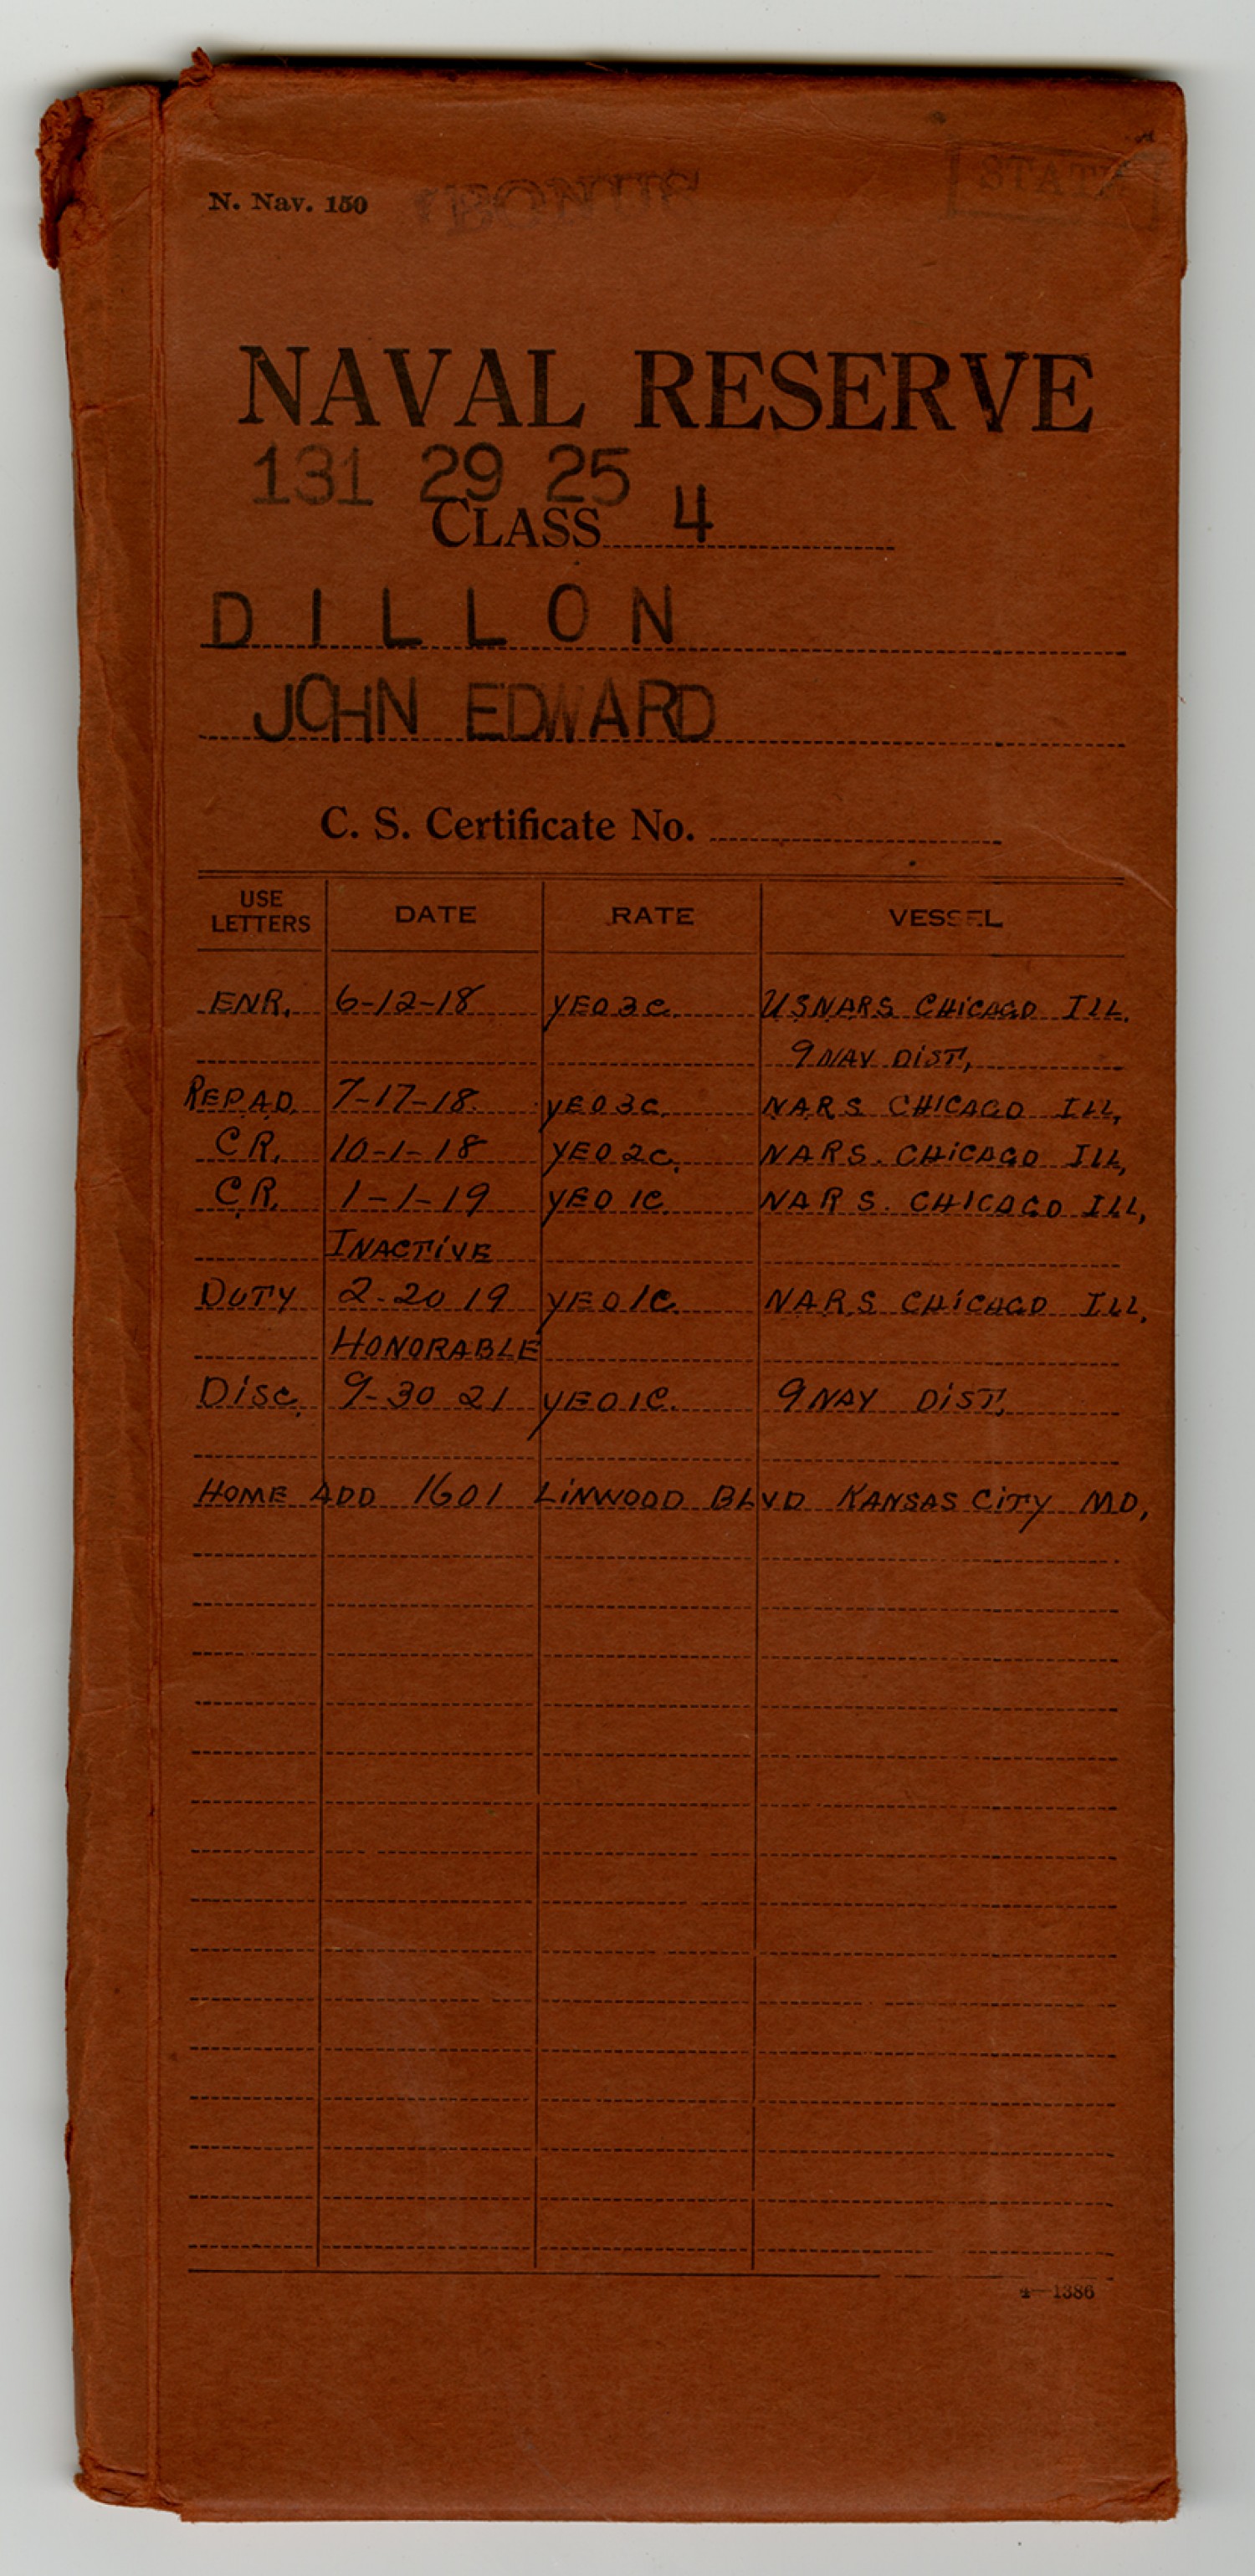 N. Nav. 150
STATE
NAVAL RESERVE
131 29 25
CLASS 4
DILLON
JOHN EDWARD
C. S. Certificate No.
USE LETTERS DATE RATE VESSEL
ENR. 6-12-18 YEO3C. USNARS CHICAGO ILL.
9 NAV DIST,
REPAD. 7-17-18. YEO3C. NARS CHICAGO ILL,
CR. 10-1-18 YEO2C. NARS. CHICAGO ILL,
CR. 1-1-19 YEO1C NARS. CHICAGO ILL,
INACTIVE
DUTY 2-20 19 YEO1C. NARS CHICAGO ILL,
HONORABLE
DISC. 9-30 21 YEO1C. 9 NAV DIST,
HOME ADD 1601 LINWOOD BLVD KANSAS CITY MO,
4—1386